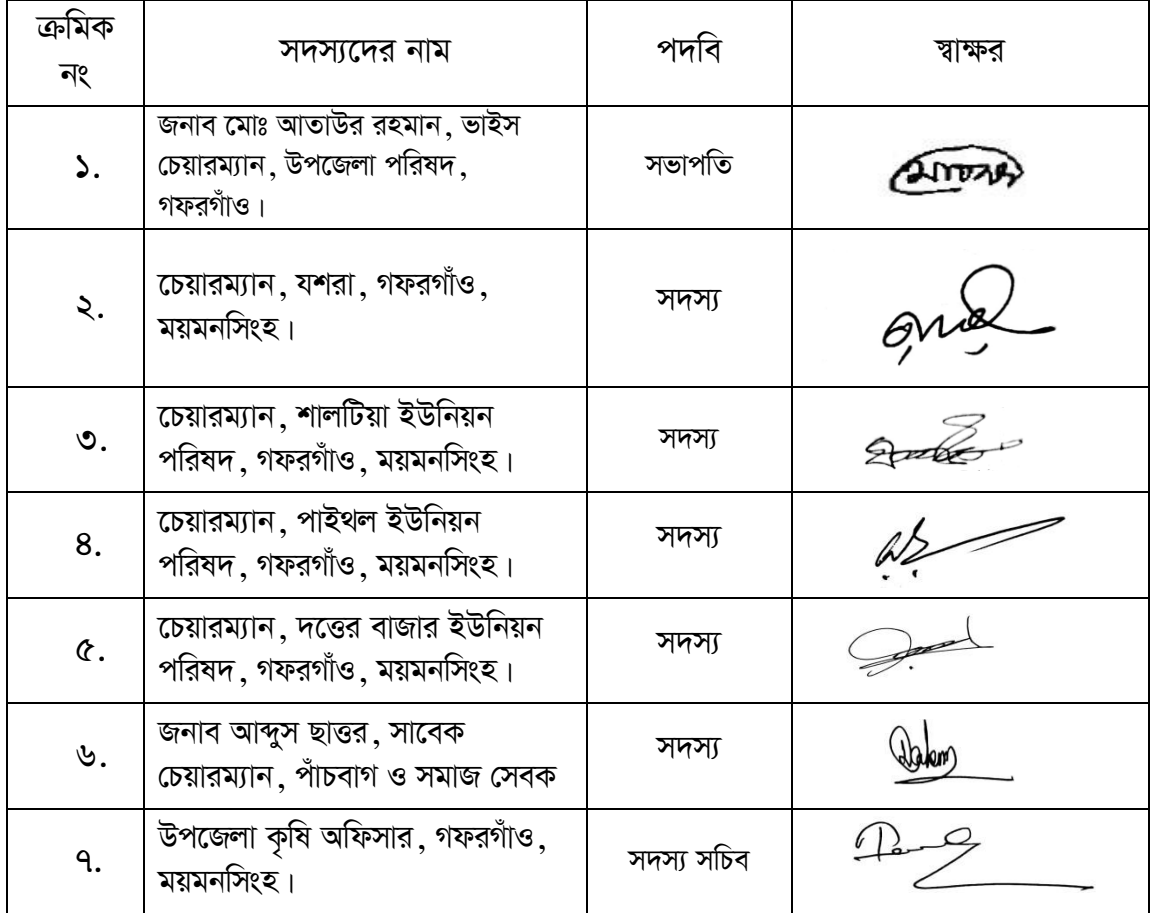 ক্রমিক
নং
সদস্যদের নাম
পদবি
স্বাক্ষর
১.
জনাব মোঃ আতাউর রহমান, ভাইস
চেয়ারম্যান, উপজেলা পরিষদ,
গফরগাঁও।
সভাপতি
২.
চেয়ারম্যান, যশরা, গফরগাঁও,
ময়মনসিংহ।
সদস্য
৩.
চেয়ারম্যান, শালটিয়া ইউনিয়ন
পরিষদ, গফরগাঁও, ময়মনসিংহ।
সদস্য
৪.
চেয়ারম্যান, পাইথল ইউনিয়ন
পরিষদ, গফরগাঁও, ময়মনসিংহ।
সদস্য
৫.
চেয়ারম্যান, দত্তের বাজার ইউনিয়ন
পরিষদ, গফরগাঁও, ময়মনসিংহ।
সদস্য
৬.
জনাব আব্দুস ছাত্তর, সাবেক
চেয়ারম্যান, পাঁচবাগ ও সমাজ সেবক
সদস্য
৭.
উপজেলা কৃষি অফিসার, গফরগাঁও,
ময়মনসিংহ।
সদস্য সচিব